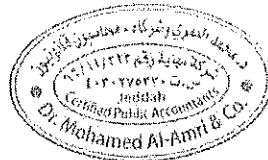 د. محمد العمري وشركاه ، محاسبون قانونيون
شركة مهنية رقم ٣٢٣/١١/٩٦
س.ت. ٤٠٣٠٢٧٥٣٢٠
Jeddah
Certified Public Accountants
Dr. Mohamed Al-Amri & Co.